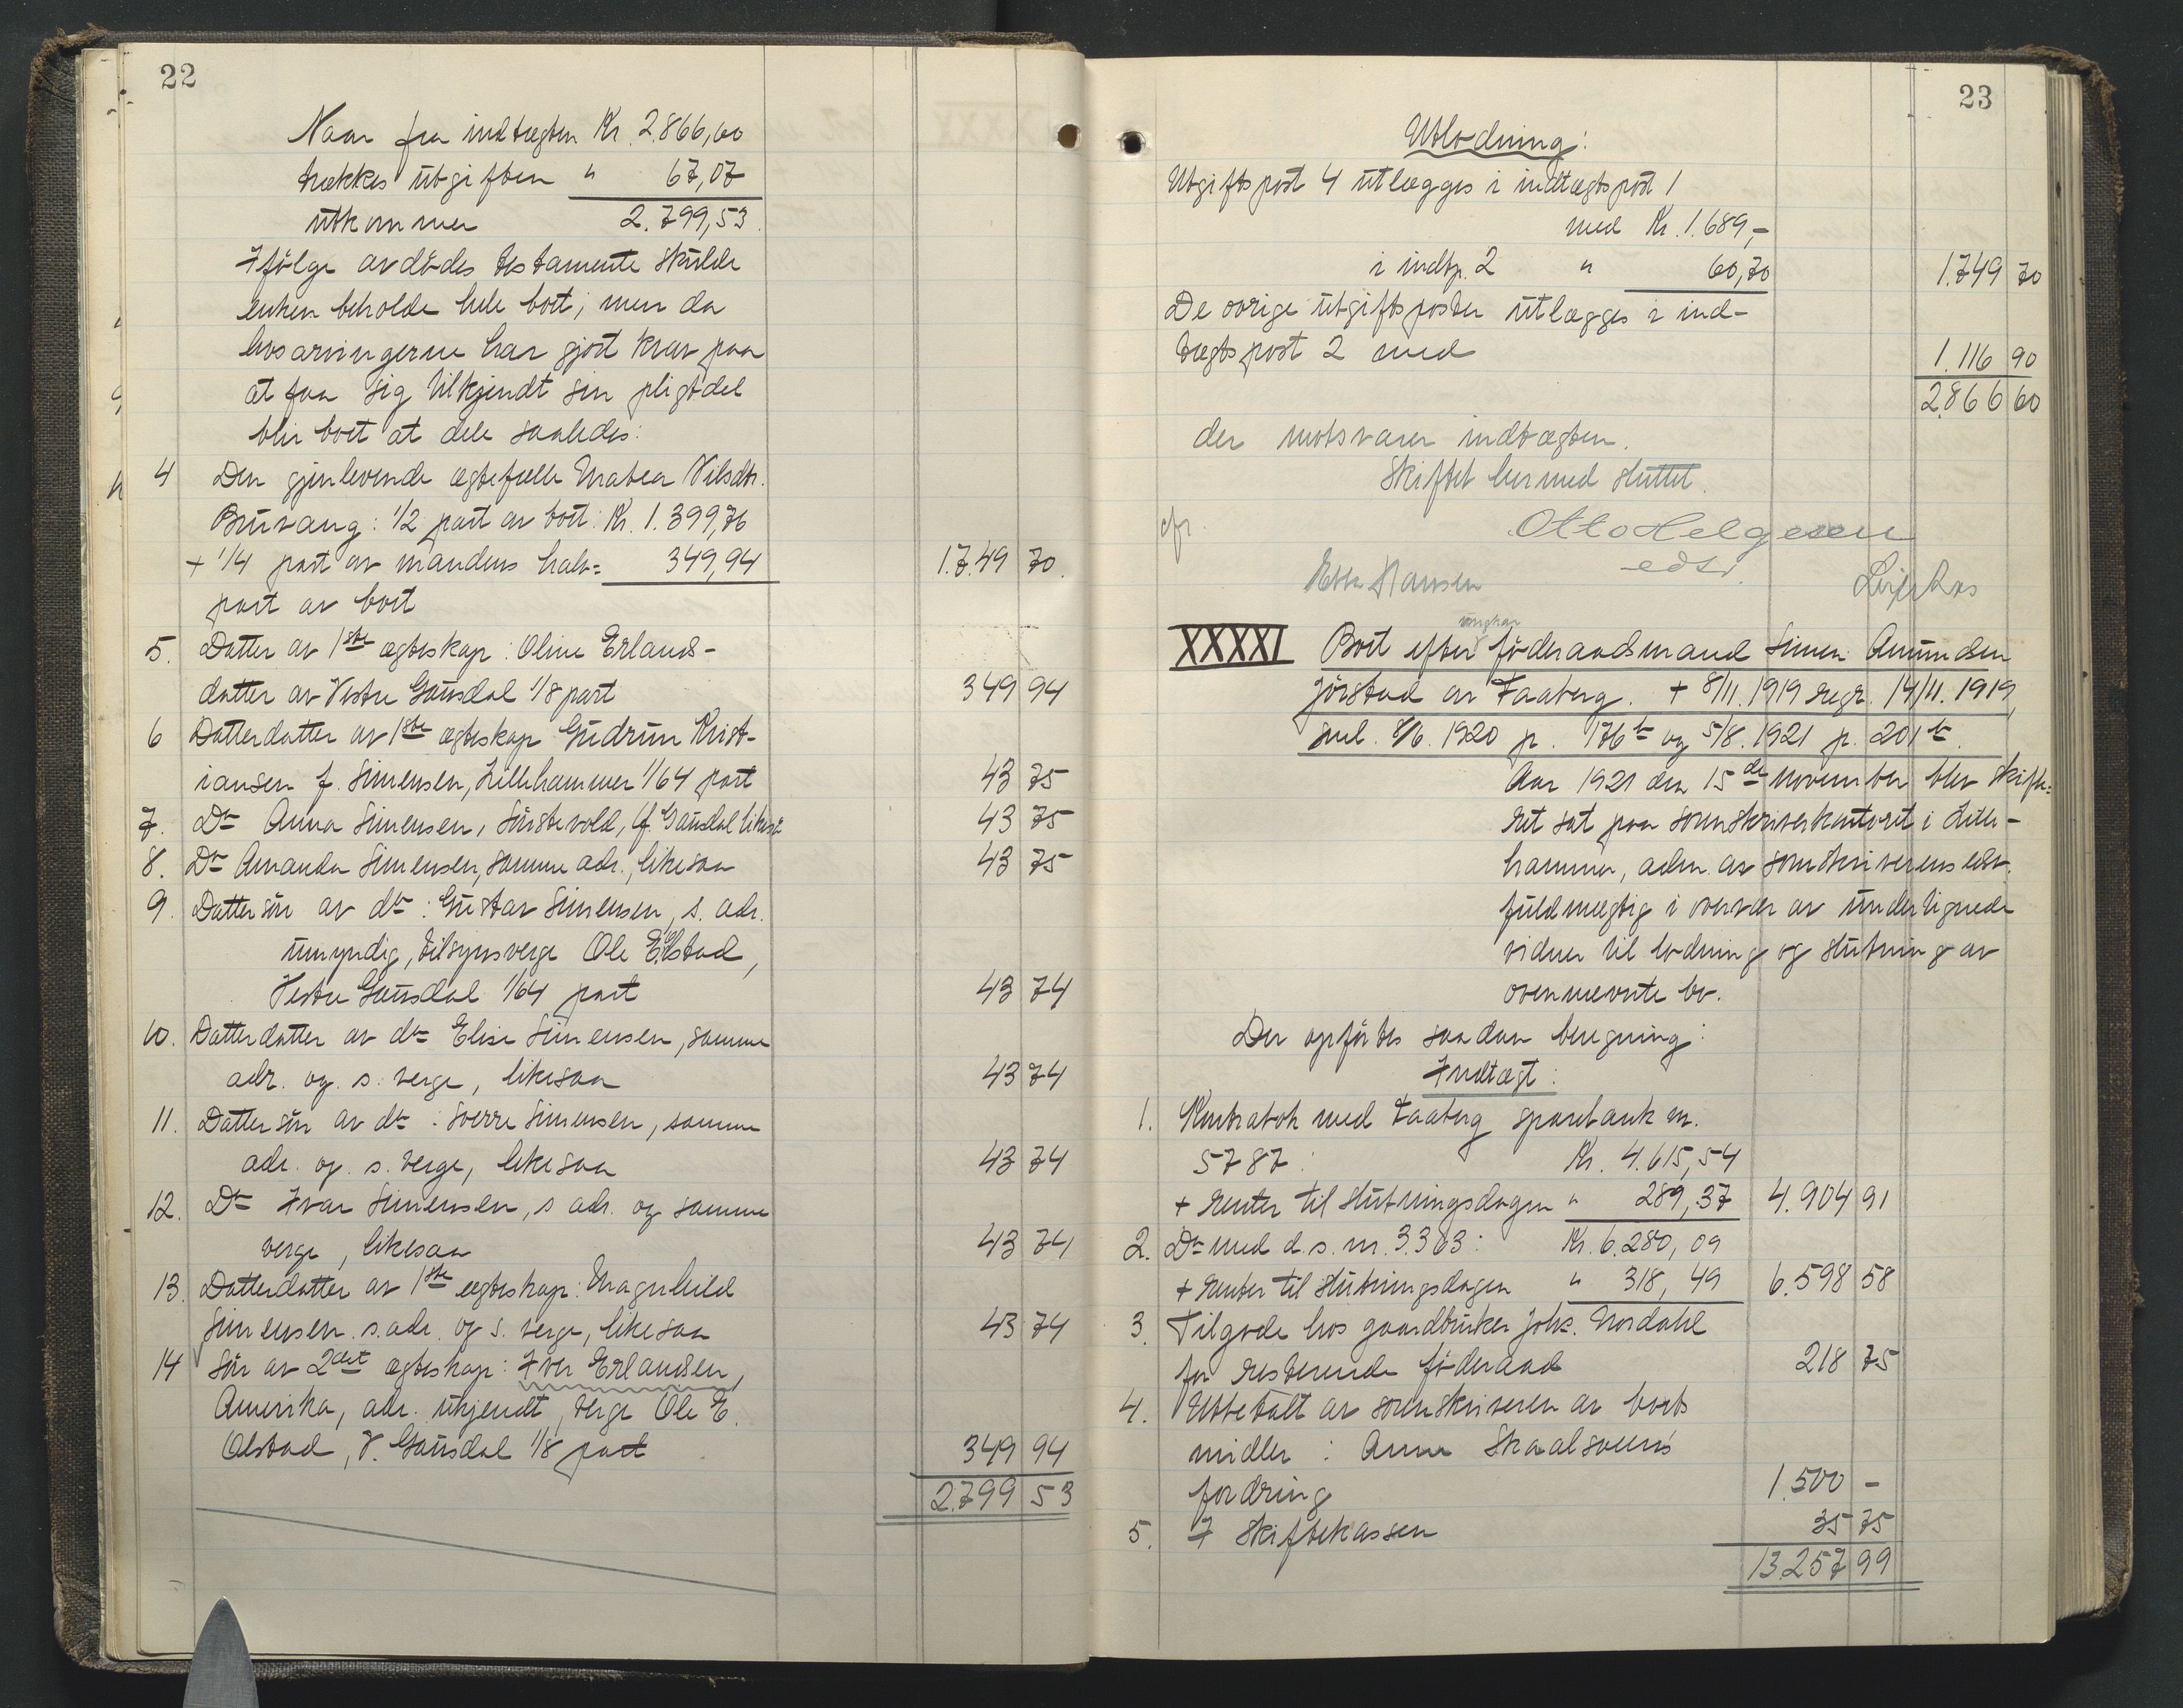 22
Naar fra indtægten Kr. 2.866,60
trækkes utgiften " 67,07
utkommer 2.799,53
Ifølge avdødes testamente skulde
enken beholde hele boet; men da
livsarvingerne har gjort krav paa
at faa sig tilkjendt sin pligtdel
blir boet at dele saaledes:
4 Den gjenlevende ægtefælle Mathea Nilsdtr.
Bruvang: 1/2 part av boet: Kr. 1.399,76
+ 1/4 part av mandens halv= 349,94 1.749 70
part av boet
5. Datter av 1ste egteskap: Oline Erlands-
datter av Vestre Gausdal 1/8 part 349 94
6 Datterdatter av 1ste egteskap Gudrun Krist-
iansen f. Simensen, Lillehammer 1/64 part 43 75
7. Do Anna Simensen, Gausdal likesaa 43 75
8. Do Amanda Simensen, samme adr., likesaa 43 75
9. Dattersøn av do: Gustav Simensen, s. adr.
umyndig, tilsynsverge Ole E. Olstad,
Vestre Gausdal 1/64 part 43 74
10. Datterdatter av do Elise Simensen, samme
adr. og s. verge, likesaa 43 74
11. Dattersøn av do: Sverre Simensen, samme
adr. og s. verge, likesaa 43 74
12. Do Ivar Simensen, s adr. og samme
verge, likesaa 43 74
13. Datterdatter av 1ste egteskap: Magnhild
Simensen. s. adr. og s. verge, likesaa 43 74
14 Søn av 2det egteskap: Iver Erlandsen,
Amerika, adr. ukjendt, verge Ole E.
Olstad, V. Gausdal 1/8 part 349 94
2.799 53
23
Utlodning:
Utgiftspost 4 utlægges i indtægtspost 1
med Kr. 1.689,-
i indtp. 2 " 60,70 1.749 70
De øvrige utgiftsposter utlægges i ind-
tægtspost 2 med 1.116 90
2.866 60
der motsvarer indtægten.
Skiftet hermed sluttet.
Otto Helgesen
edsv.
Hansen
XXXXI Boet efter ungkar føderaadsmand Simen Amundsen
Jørstad av Faaberg. + 8/11. 1919 regr. 14/11. 1919,
8/6. 1920 p. 176b og 5/8. 1921 p. 201b.
Aar 1921 den 15de november blev skifte=
ret sat paa sorenskriverkontoret i Lille-
hammer, adm. av sorenskriverens edsv.
fuldmegtig i overvær av undertegnede
vidner til lodning og slutning av
ovennevnte bo.
Der opførtes saadan beregning:
Indtægt:
1. Kontrabok med Faaberg sparebank nr.
5787: Kr. 4.615,54
+ renter til slutningsdagen " 289,37 4.904 91
2. Do med d. s. nr. 3.363: Kr. 6.280,09
+ renter til slutningsdagen " 318,49 6.598 58
3. Tilgode hos gaardbruker Johs. Nordahl
for resterende føderaad 218 75
4. Utbetalt av sorenskriveren av boets
midler: Anne Skaalsveens
fordring 1.500 -
5. I skiftekassen 35 75
13.257 99